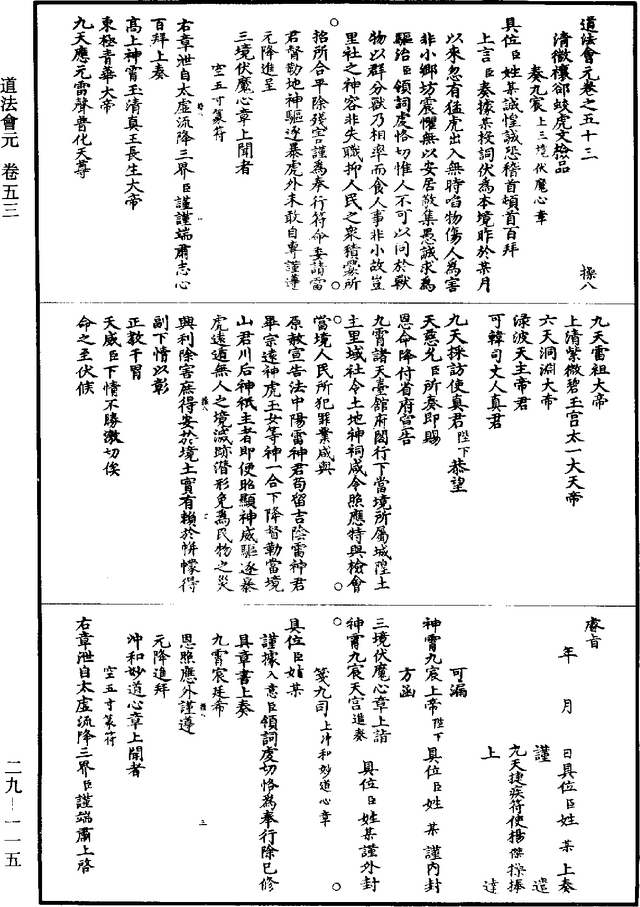 道法會元 卷五三
二九－一一五
道法會元卷之五十三
操八
清微禳卻蛟虎文檢品
奏九宸上三境伏魔心章
具位臣姓某誠惶誠恐稽首頓首百拜
上言臣奏據某投詞伏為本境昨於某月
以來忽有猛虎出入無時啗物傷人為害
非小鄉坊震懼無以安居敬集愚誠求為
驅治臣領詞虔恪切惟人不可以同於獸
物以群分獸乃相率而食人事非小故豈
里社之神容非失職抑人民之衆積釁所
招所合平除殘害謹為奉行符命委請雷
君督勒地神驅逐暴虎外未敢自專謹遵
元降進呈
三境伏魔心章上聞者
空五寸篆符
右章泄自太虛流降三界臣謹謹端肅志心
百拜上奏
高上神霄玉清真王長生大帝
東極青華大帝
九天應元雷聲普化天尊
九天雷祖大帝
上清紫微碧玉宮太一大天帝
六天洞淵大帝
淥波天主帝君
可韓司丈人真君
九天採訪使真君陛下恭望
天慈允臣所奏即賜
恩命降付省府宣告
九霄諸天臺館府閣行下當境所屬城隍土
主里域社令土地神祠咸令照應特與檢會
當境人民所犯罪業咸與
原赦宣告法中陽雷神君苟留吉陰雷神君
畢宗遠神虎玉女等神一合下降督勒當境
山君川后神祇主者即便昭顯神威驅逐暴
虎遠遁無人之境滅跡潛形免為民物之災
興利除害庶得安於境土實有賴於帡幪得
副下情以彰
正教干冒
天威臣下情不勝激切俟
命之至伏候
睿旨
年 月 日具位臣姓某上奏
謹 遣
九天捷疾符使楊傑操捧
上 達
可漏
神霄九宸上帝陛下 具位臣姓某謹內封
方函
三境伏魔心章上詣
神霄九宸天宮進奏 具位臣姓某謹外封
箋九司上沖和妙道心章
具位臣姓某
謹據入意臣領詞虔切恪為奉行除已修
具章書上奏
九霄宸廷希
恩照應外謹遵
元降進拜
沖和妙道心章上聞者
空五寸篆符
右章泄自太虛流降三界臣謹端肅上啓